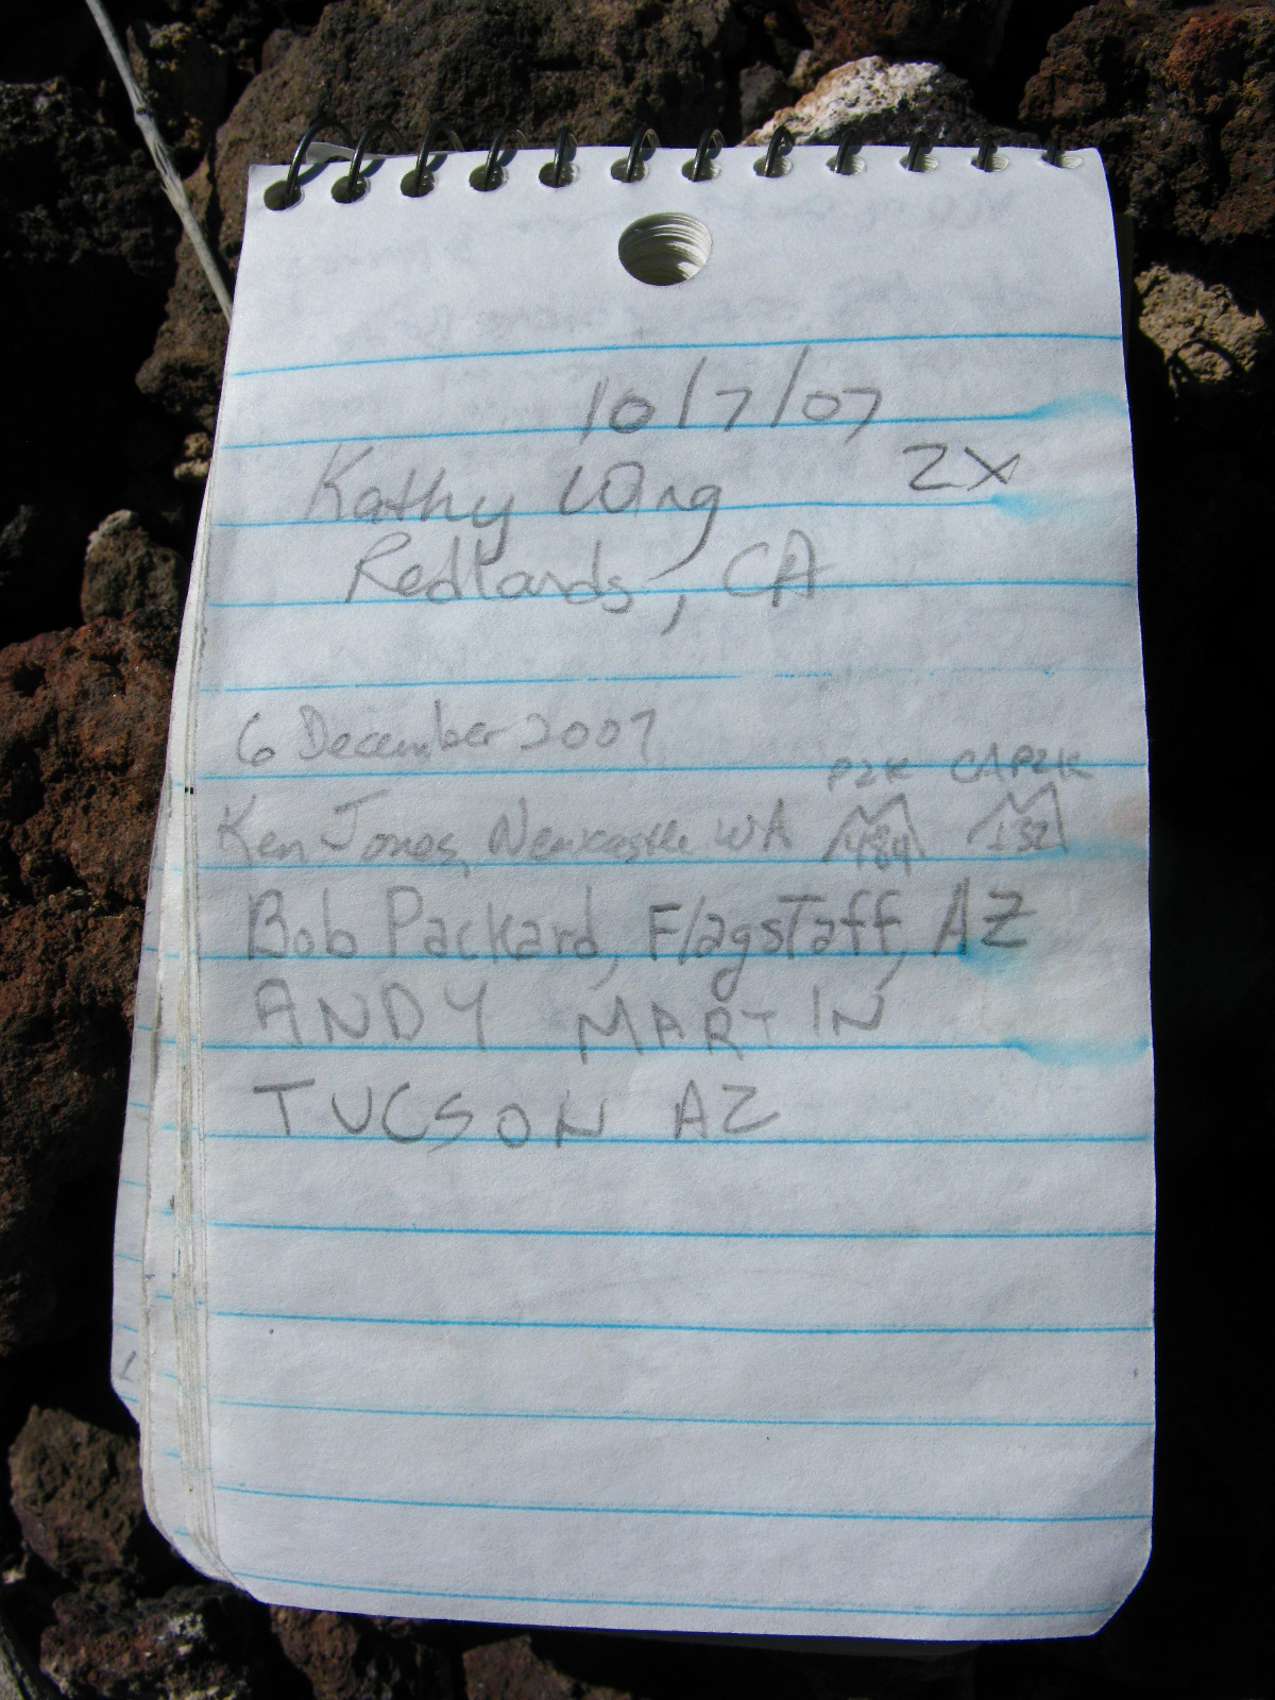 10/7/07
Kathy Wing 2X
Redlands, CA
6 December 2007
P2K CAP2K
Ken Jones, Newcastle WA 484 132
Bob Packard, Flagstaff, AZ
ANDY MARTIN
TUCSON AZ